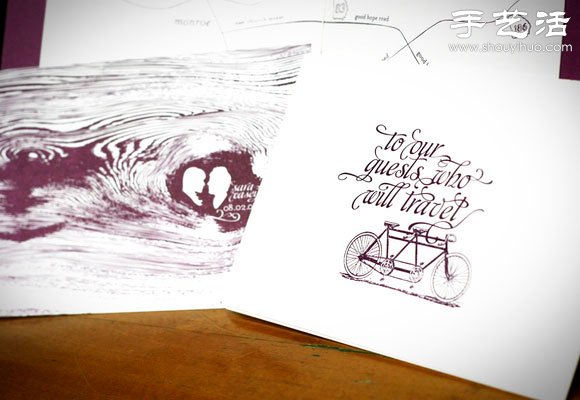 monroe
83
good hope road
185
手艺活
www.shouyihuo.com
sara
casey
08.02.
to our
guests who
will travel